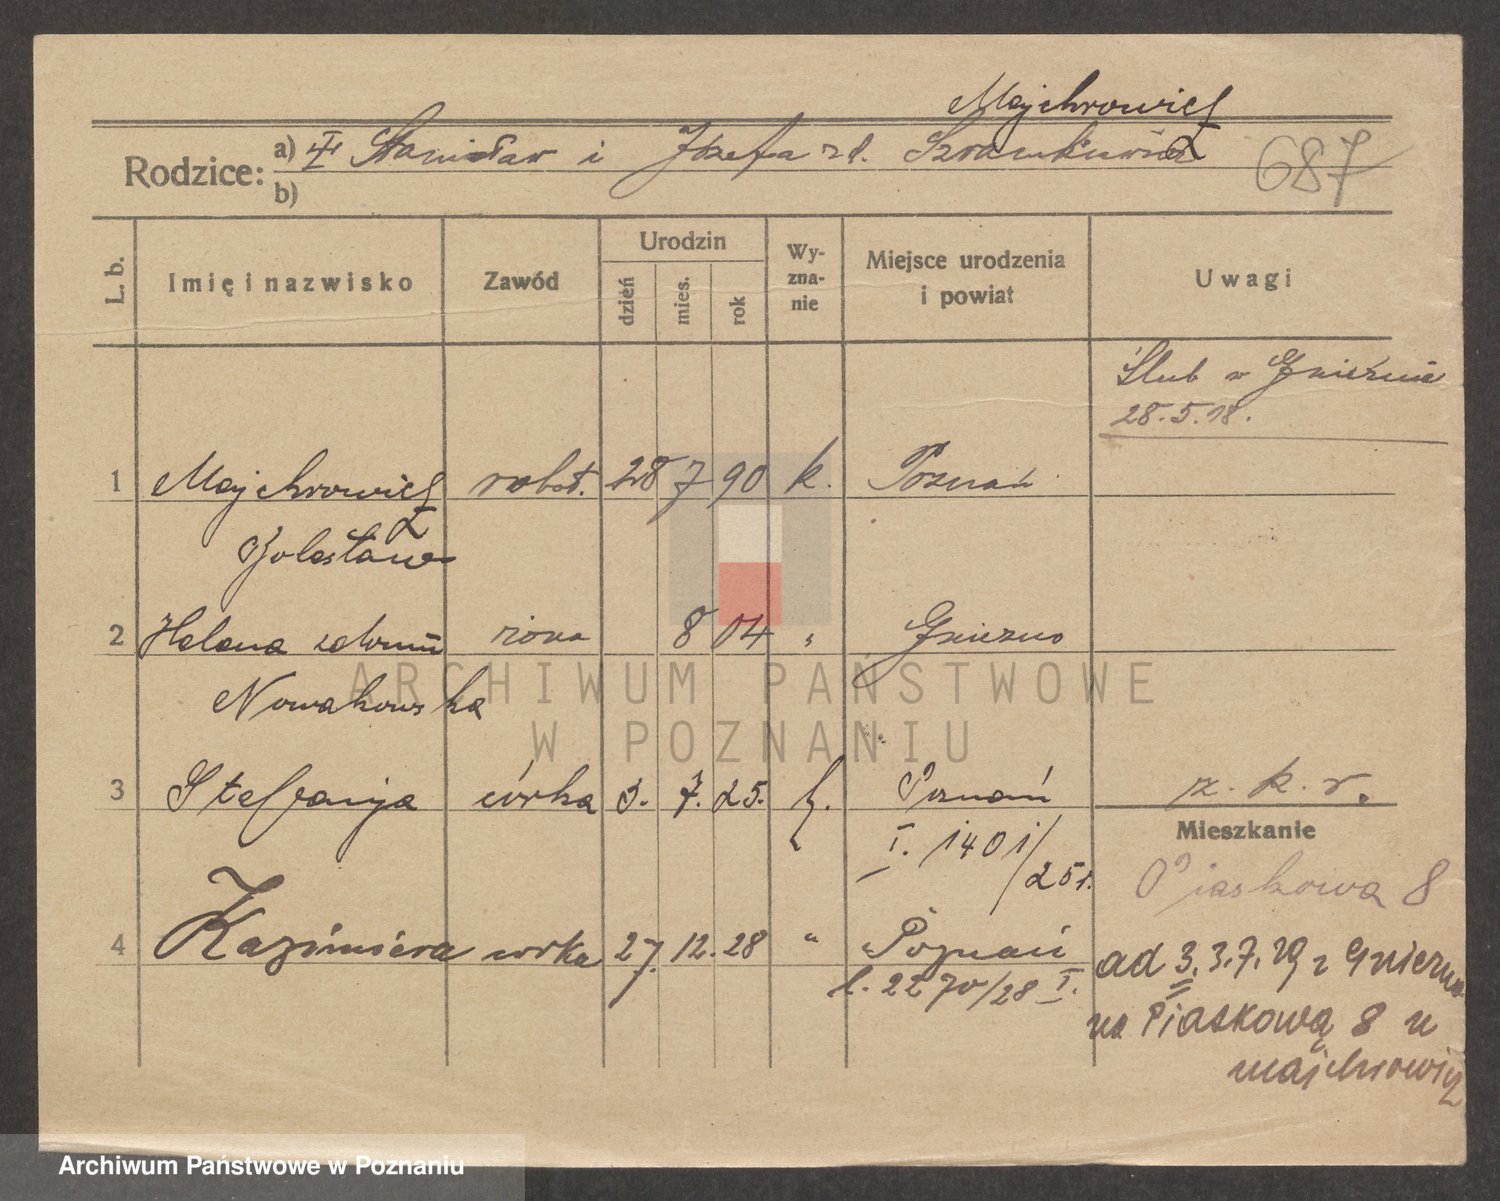 Majchrowicz
Rodzice: a) Stanisław i Józefa zd. 687
b)
L. b. Imię i nazwisko Zawód Urodzin dzień mies. rok Wyznanie Miejsce urodzenia i powiat Uwagi
Ślub w Gnieźnie
28.5.18.
1 Majchrowicz robot. 28 7 90 k. Poznań
Bolesław
2 Helena z domu żona 8 04 " Gniezno
Nowakowska
3 Stefanja córka 3. 7. 25. k. Poznań rz. k. r.
I. 1401/25 r.
Mieszkanie
Piaskowa 8
4 Kazimiera córka 27. 12. 28 " Poznań
l. 2270/28 I.
od 3. 3.7.29 z Gniezna
na Piaskową 8 u
majchrowicz
ARCHIWUM PAŃSTWOWE
W POZNANIU
Archiwum Państwowe w Poznaniu